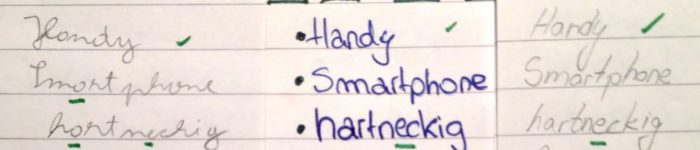 Handy ✓
Smort phone
hortneckig
•Handy ✓
•Smartphone
•hartneckig
Handy ✓
Smartphone
hartneckig